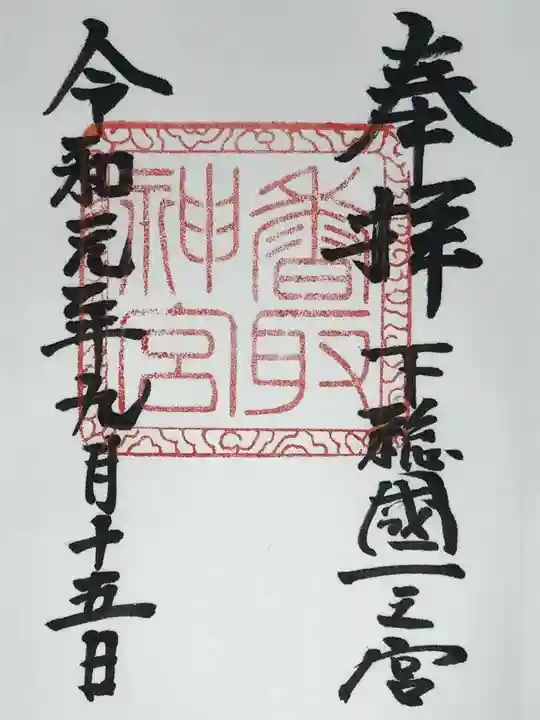 奉拝
下総國一之宮
香取
神宮
令和元年九月十五日